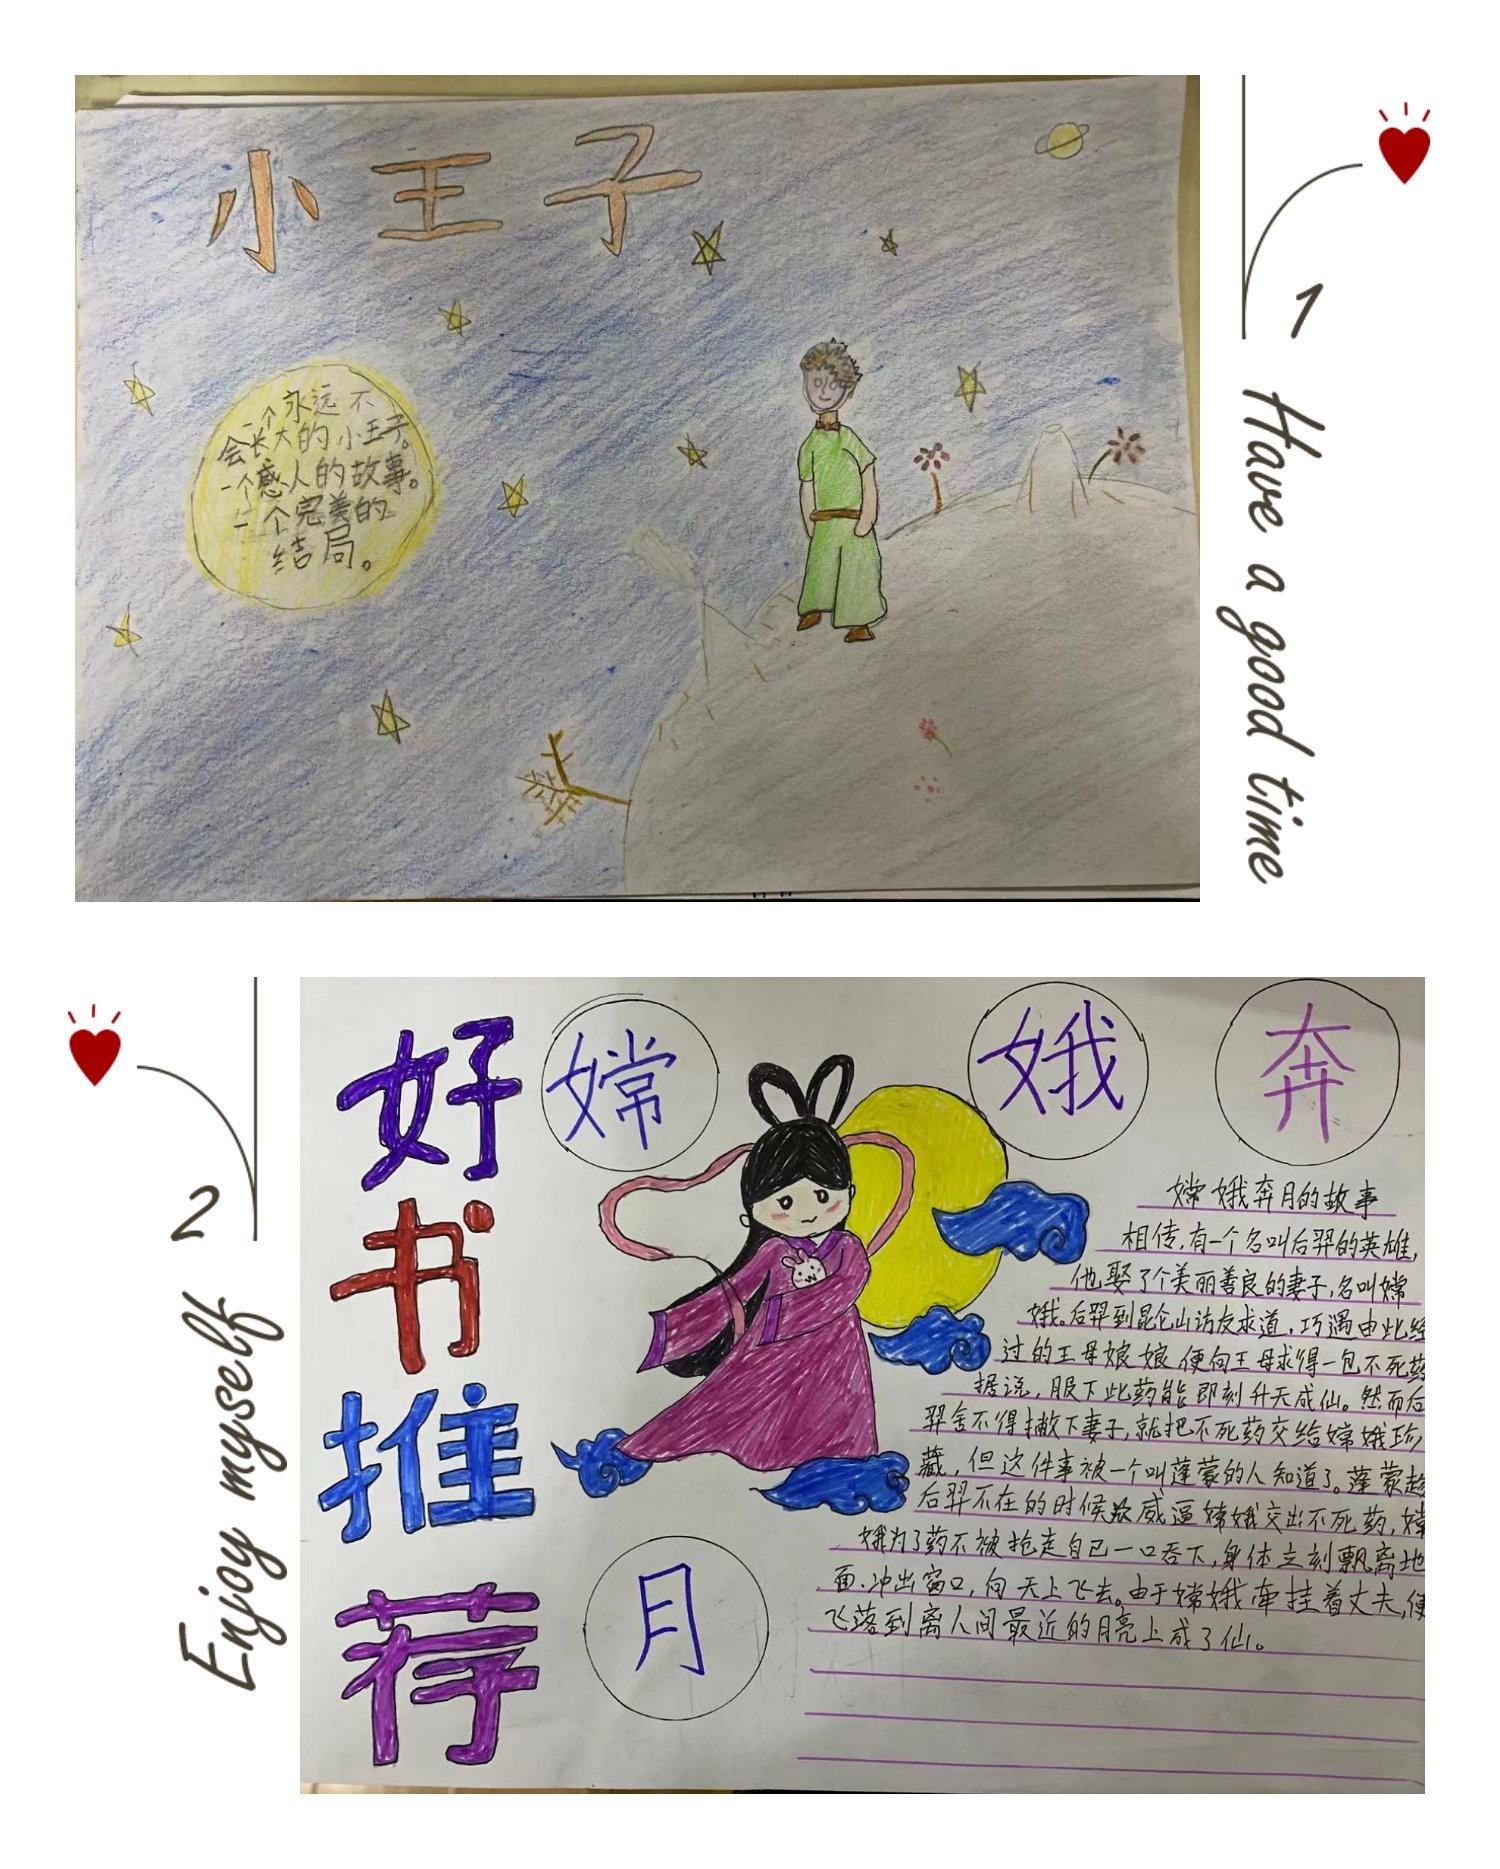 小王子
一个永远不
会长大的小王子。
一个感人的故事。
一个完美的
结局。
1 Have a good time
2 Enjoy myself
好书推荐
嫦娥奔月
嫦娥奔月的故事
相传,有一个名叫后羿的英雄,
他娶了个美丽善良的妻子,名叫嫦
娥。后羿到昆仑山访友求道,巧遇由此经
过的王母娘娘,便向王母求得一包不死药
据说,服下此药能即刻升天成仙。然而后
羿舍不得撇下妻子,就把不死药交给嫦娥珍
藏,但这件事被一个叫蓬蒙的人知道了。蓬蒙趁
后羿不在的时候威逼嫦娥交出不死药,嫦
娥为了药不被抢走自己一口吞下,身体立刻飘离地
面、冲出窗口,向天上飞去。由于嫦娥牵挂着丈夫,便
飞落到离人间最近的月亮上成了仙。